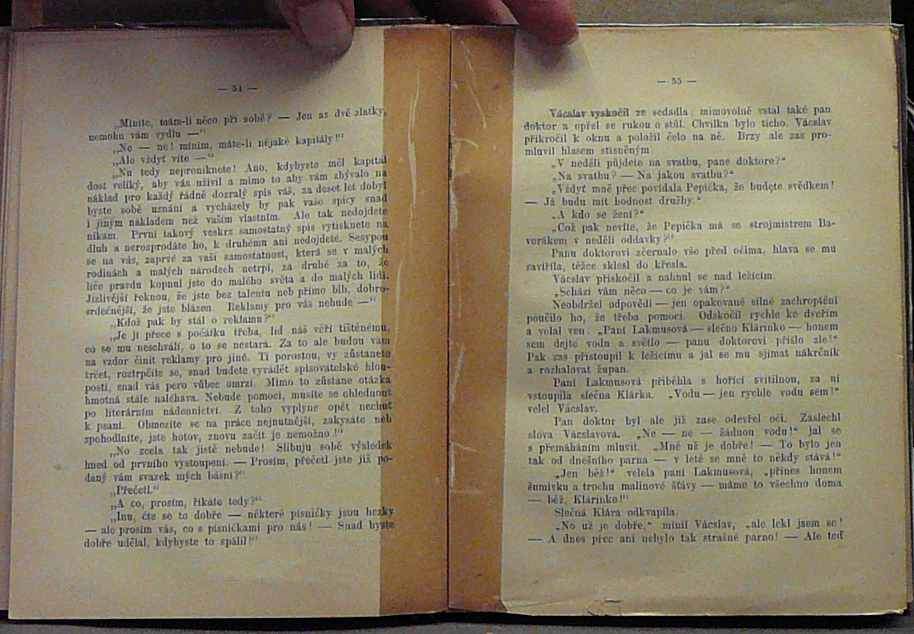 — 54 —
„Miníte, mám-li něco při sobě? — Jen as dvě zlatky,
nemohu vám vydlu —“
„Ne — ne! míním, máte-li nějaké kapitály?“
„Ale vždyť víte —“
„Nu tedy neproniknete! Ano, kdybyste měl kapitál
dost veliký, aby vás uživil a mimo to aby vám zbývalo na
náklad pro každý řádně dozralý spis váš, za deset let dobyl
byste sobě uznání a vycházely by pak vaše spisy snad
i jiným nákladem než vaším vlastním. Ale tak nedojdete
nikam. První takový veskrz samostatný spis vytisknete na
dluh a nerozprodáte ho, k druhému ani nedojdete. Sesypou
se na vás, zaprvé za vaši samostatnost, která se v malých
rodinách a malých národech netrpí, za druhé za to, že
líče pravdu kopnul jste do malého světa a do malých lidí.
Jizlivější řeknou, že jste bez talentu neb přímo blb, dobro-
srdečnější, že jste blázen. Reklamy pro vás nebude —“
„Kdož pak by stál o reklamu?“
„Je jí přece s počátku třeba, lid náš věří tištěnému,
co se mu neschválí, o to se nestará. Za to ale budou vám
na vzdor činit reklamy pro jiné. Ti porostou, vy zůstanete
trčet, roztrpčíte se, snad budete vyrádět spisovatelské hlou-
posti, snad vás péro vůbec omrzí. Mimo to zůstane otázka
hmotná stále naléhavá. Nebude pomoci, musíte se ohlednout
po literárním nádennictví. Z toho vyplyne opět nechuť
k psaní. Obmezíte se na práce nejnutnější, zakysáte neb
zpohodlníte, jste hotov, znovu začít je nemožno!“
„No zcela tak jistě nebude! Slibuju sobě výsledek
hned od prvního vystoupení. — Prosím, přečetl jste již po-
daný vám svazek mých básní?“
„Přečetl.“
„A co, prosím, říkáte tedy?“
„Inu, čte se to dobře — některé písničky jsou hezky
— ale prosím vás, co s písničkami pro nás! — Snad byste
dobře udělal, kdybyste to spálil!“
— 55 —
Václav vyskočil ze sedadla; mimovolně vstal také pan
doktor a opřel se rukou o stůl. Chvilku bylo ticho. Václav
přikročil k oknu a položil čelo na ně. Brzy ale zas pro-
mluvil hlasem stísněným.
„V neděli půjdete na svatbu, pane doktore?“
„Na svatbu? — Na jakou svatbu?“
„Vždyť mně přec povídala Pepička, že budete svědkem!
— Já budu mít hodnost družby.“
„A kdo se žení?“
„Což pak nevíte, že Pepička má se strojmistrem Ba-
vorákem v neděli oddavky?“
Panu doktorovi zčernalo vše před očima, hlava se mu
zavířila, těžce sklesl do křesla.
Václav přiskočil a nahnul se nad ležícím.
„Schází vám něco — co je vám?“
Neobdržel odpovědi — jen opakované silné zachroptění
poučilo ho, že třeba pomoci. Odskočil rychle ke dveřím
a volal ven: „Paní Lakmusová — slečno Klárinko — honem
sem dejte vodu a světlo — panu doktorovi přišlo zle!“
Pak zas přistoupil k ležícímu a jal se mu sjímat nákrčník
a rozhalovat župan.
Paní Lakmusová přiběhla s hořící svítilnou, za ní
vstoupila slečna Klárka. „Vodu — jen rychle vodu sem!“
velel Václav.
Pan doktor byl ale již zase odevřel oči. Zaslechl
slova Václavova. „Ne — ne — žádnou vodu!“ jal se
s přemáháním mluvit. „Mně už je dobře! — To bylo jen
tak od dnešního parna — v létě se mně to někdy stává!“
„Jen běž!“ velela paní Lakmusová, „přines honem
šumivku a trochu malinové šťávy — máme to všechno doma
— běž, Klárinko!“
Slečna Klára odkvapila.
„No už je dobře,“ mínil Václav, „ale lekl jsem se!
— A dnes přec ani nebylo tak strašné parno! — Ale teď